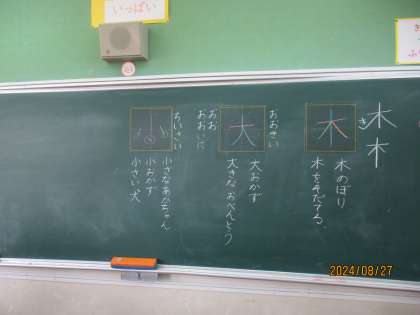 いっぱい
木
木
き
木
木のぼり
木をそだてる。
おおきい
大
おお
おおいに
大おかず
大きなおべんとう
ちいさい
小
小さなあかちゃん
小おかず
小さい犬
2024/08/27